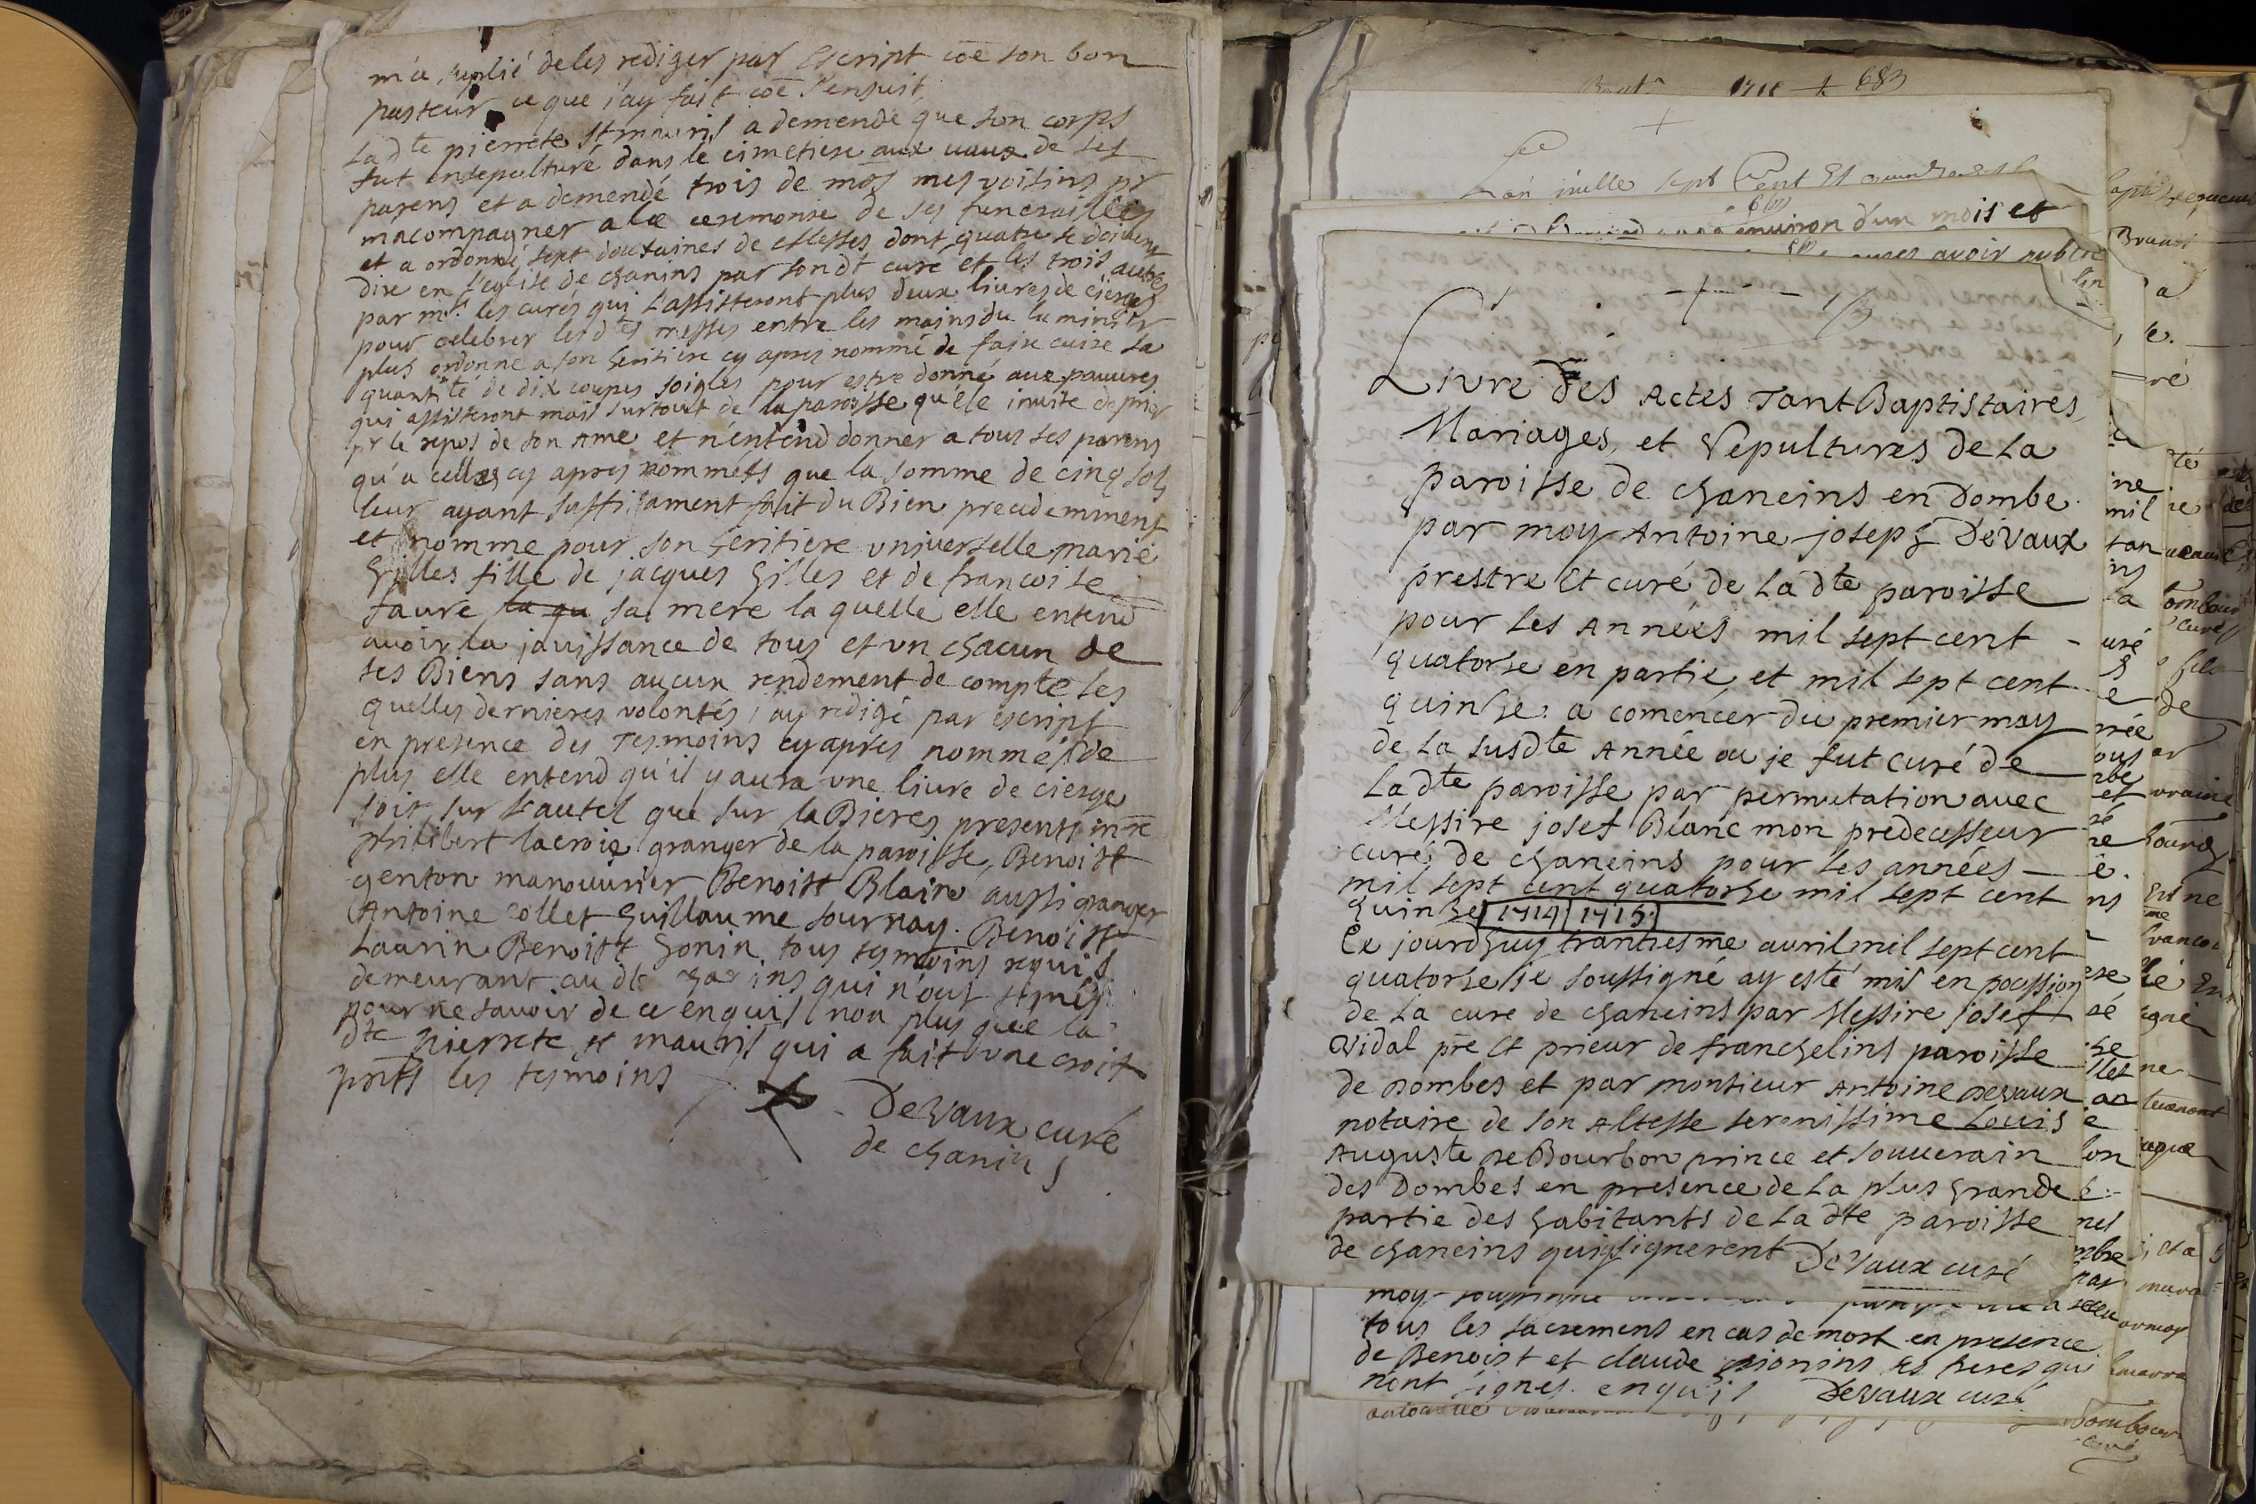 m'a suplié de les rediger par Escript coe son bon
pasteur ce que j'ay fait coe s'ensuit
Ladte pierrete St mauris a demendé que son corps
fut ensepulturé dans le cimetiere aux vaux de ses
parens et a demendé trois de mes voisins pr
macompagner a la ceremonie de ses funerailles
et a ordonné sept doutaines de Messes dont quatre se doivent
dire en l'eglise de chanins par sondt curé et les trois autres
par mrs. les curés qui l'assisteront plus deux livres de cierges
pour celebrer lesdtes messes entre les mains du luminier
plus ordonne a son heritiere cy apres nommé de faire cuire la
quantité de dix coupes soigles pour estre donné aux pauvres
qui assisteront mais surtout de la paroisse qu'ele invite de prier
pr le repos de son Ame et n'entend donner a tous ses parens
qu'a celles cy apres nommées que la somme de cinq sols
leur ayant suffisament fait du Bien precedemment
et nomme pour son heritiere universelle marie
Gilles fille de jacques Gilles et de francoise
faure la qu sa mere la quelle elle entend
avoir la jouissance de tous et un chacun de
ses Biens sans aucun rendement de compte les
quelles dernieres volontés j'ay redigé par escript
en presence des Tesmoins cy aprés nommés de
plus elle entend qu'il y aura une livre de cierge
soit sur l'autel que sur la Bieres presents mre
philibert lacroix granger de la paroisse, Benoist
genton manouvrier Benoist Blain aussi granger
Antoine Collet Guillaume fournay. Benoist
Laurin Benoist Gonin tous tesmoins requis
demeurant audt chanins qui n'ont signés
pour ne savoir de ce enquis non plus que la
dte pierrete st mauris qui a fait une croix
pnts les tesmoins
Devaux curé
de chanins
1715 + 683
mille sept Cent Et
environ d'un mois et
apres avoir publié
Livre des Actes Tant Baptistaires,
Mariages, et Sepultures de La
paroisse de chaneins en Dombe
par moy Antoine joseph Devaux
prestre Et curé de La dte paroisse
pour les Années mil sept cent
quatorse en partie, et mil sept cent
quinse: a comencer du premier may
de La susdte Année ou je fut curé de
Ladte paroisse par permutation avec
Messire josef Blanc mon predecesseur
curé de chaneins pour les années
mil sept cent quatorse mil sept cent
quinse 1714 1715.
Ce jourdhuy trantiesme avril mil sept cent
quatorse je soussigné ay esté mis en poession
de La cure de chaneins par Messire josef
Vidal pre Et prieur de franchelins paroisse
de Dombes et par monsieur Antoine Devaux
notaire de son Altesse serenissime Louis
Auguste de Bourbon prince et souverain
des Dombes en presence de La plus grande
partie des habitants de La dte paroisse
de chaneins qui signerent Devaux curé
tous les sacremens en cas de mort en presence
de Benoist et claude pionins ses freres qui
n'ont signes enquis Devaux curé